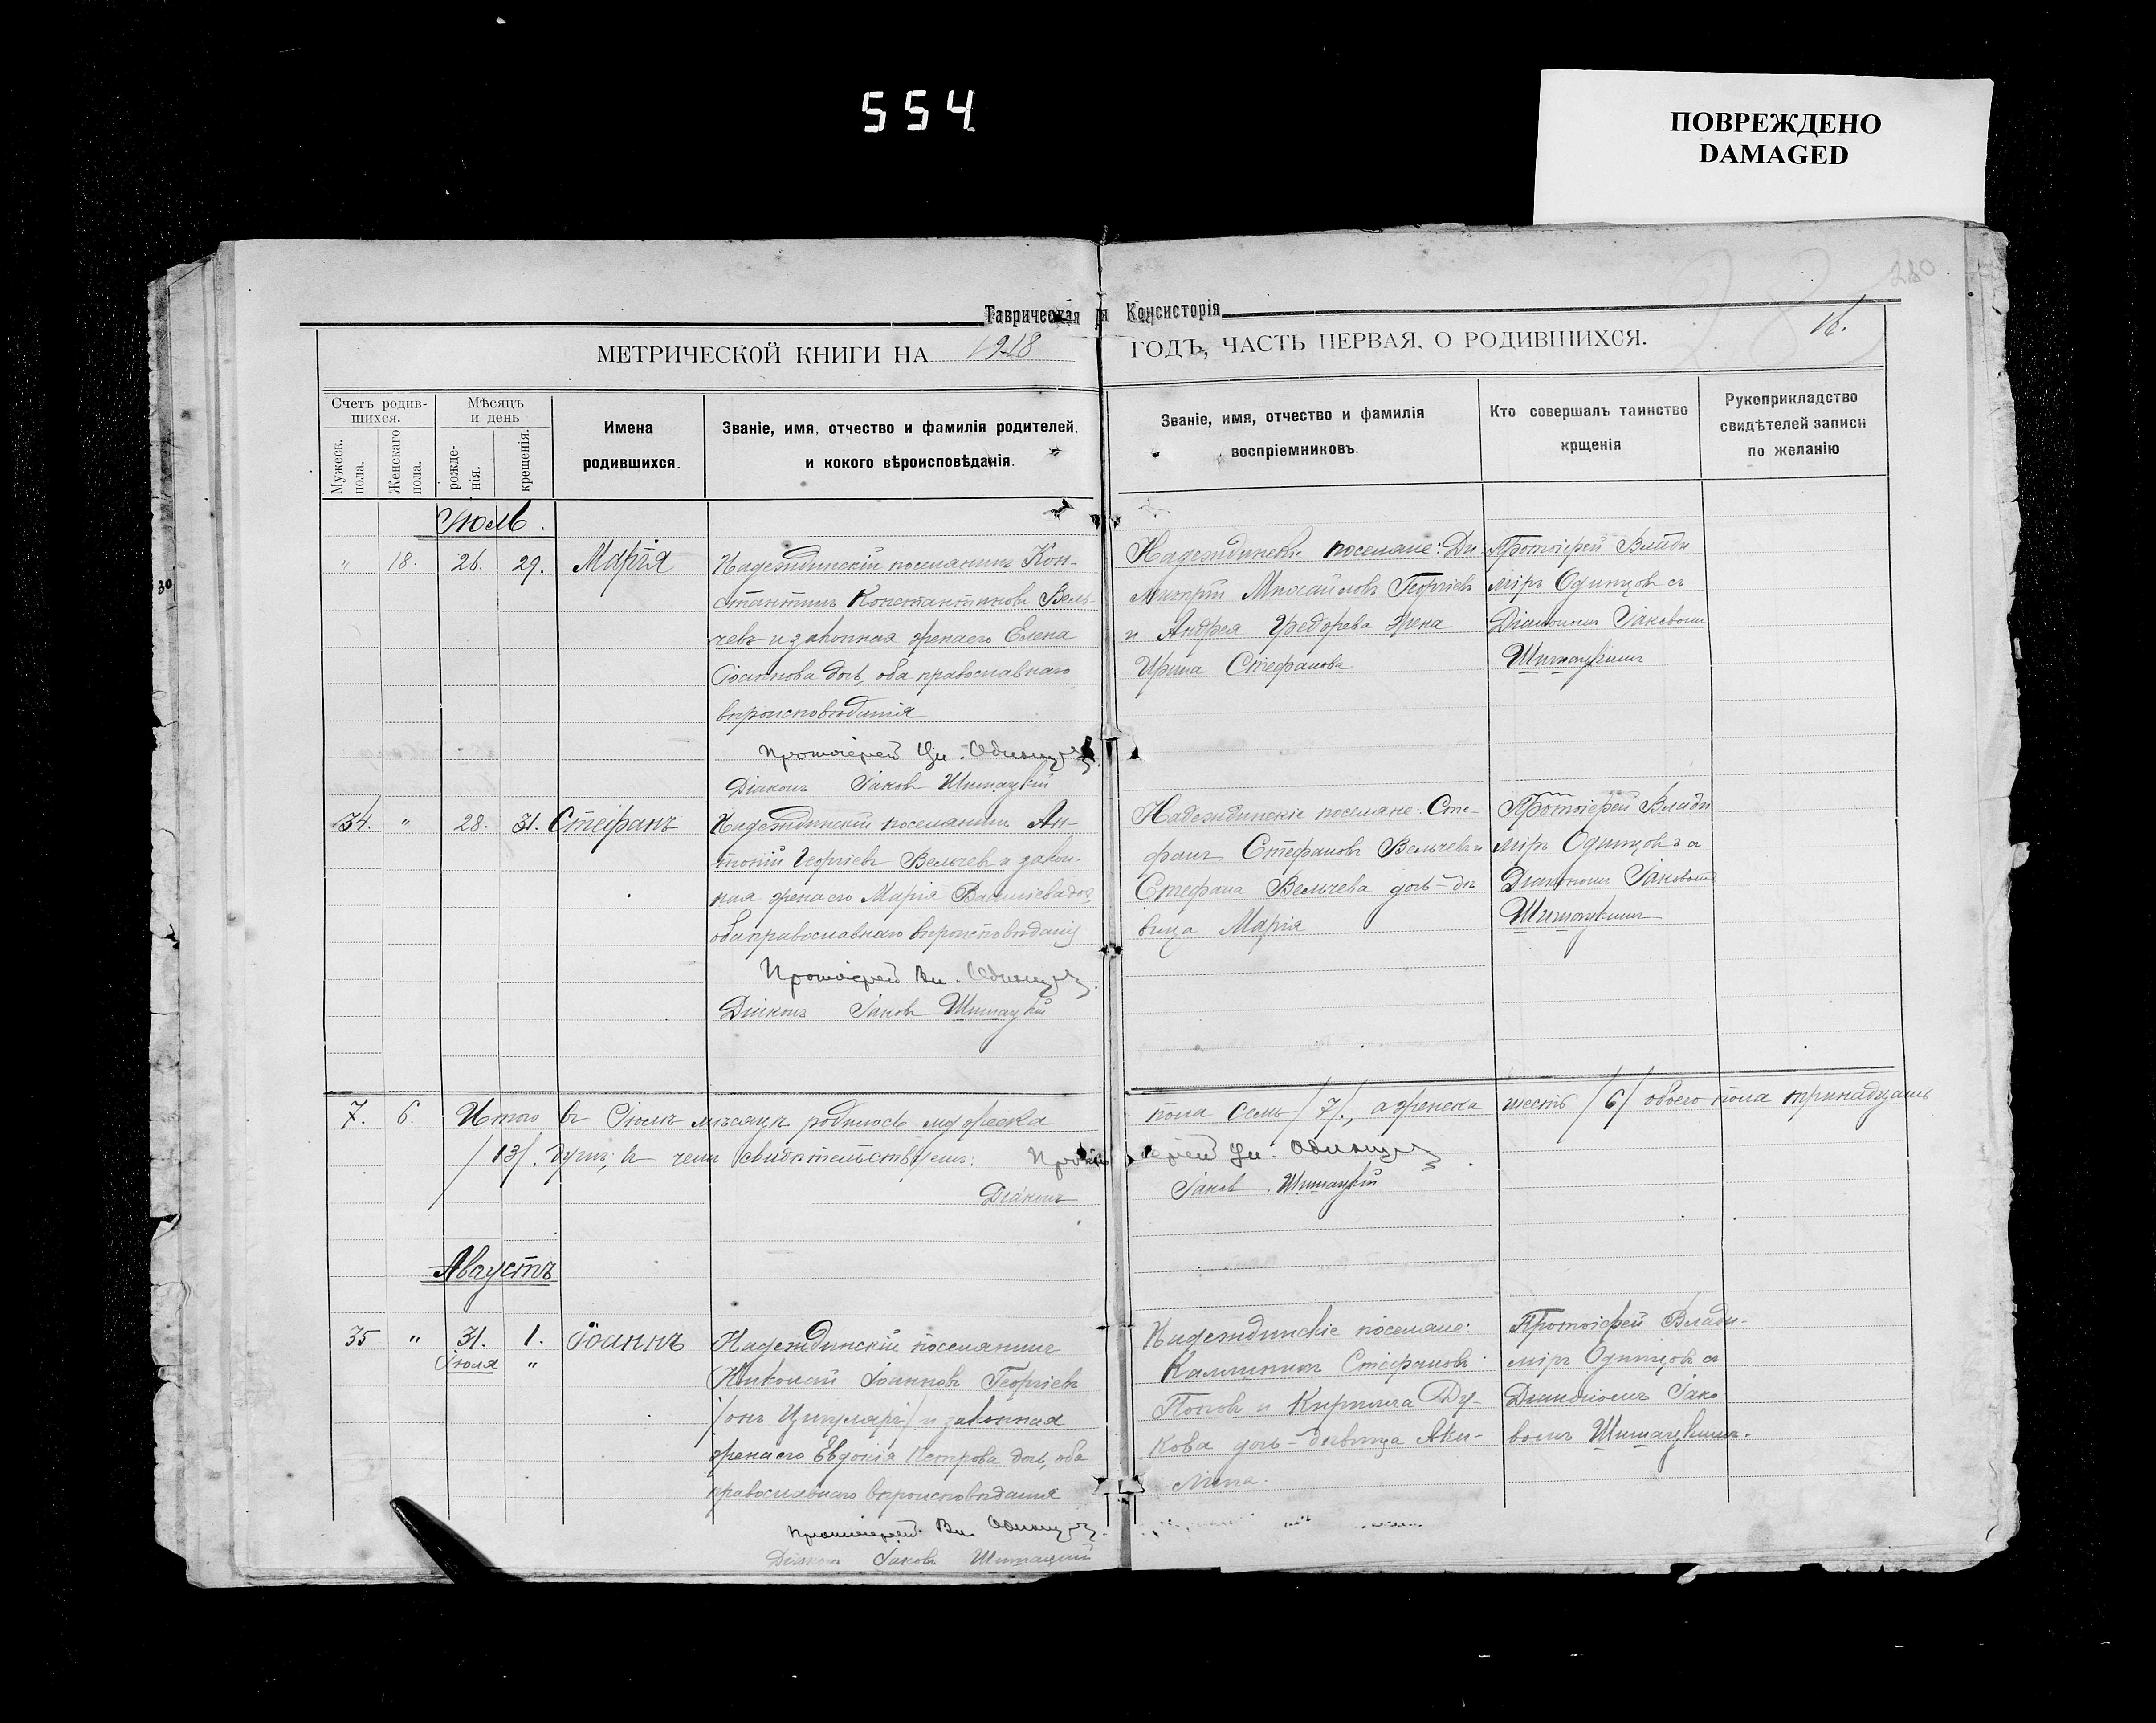 554
ПОВРЕЖДЕНО
DAMAGED
280
Таврическая Консисторія
16.
МЕТРИЧЕСКОЙ КНИГИ НА 1918 ГОДЪ, ЧАСТЬ ПЕРВАЯ, О РОДИВШИХСЯ.
Счетъ родив-
шихся.
Мужеск.
пола.
Женскаго
пола.
Мѣсяцъ
и день
рожде-
нія.
крещенія.
Имена
родившихся.
Званіе, имя, отчество и фамилія родителей,
и кокого вѣроисповѣданія.
Званіе, имя, отчество и фамилія
воспріемниковъ.
Кто совершалъ таинство
крщенія
Рукоприкладство
свидѣтелей записи
по желанію
30
Іюль.
" 18. 26. 29. Марія
Надеждинскій поселянинъ Кон-
стантинъ Константиновъ Вель-
чевъ и законная жена его Елена
Іоаннова дочь, оба православнаго
вѣроисповѣданія
Протоіерей Вл. Одинцовъ
Діаконъ Іаковъ Шишацкій
Надеждинскіе поселяне: Ди-
митрій Михайловъ Георгіевъ
и Андрея Федорева жена
Ирина Стефанова
Протоіерей Влади
міръ Одинцовъ съ
Діакономъ Іаковомъ
Шишацкимъ
34. " 28. 31. Стефанъ
Надеждинскій поселянинъ Ан-
тоній Георгіевъ Вельчев и закон-
ная жена его Марія Васильева доч,
оба православнаго вѣроисповѣданія
Протоіерей Вл. Одинцовъ
Діаконъ Іаковъ Шишацкій
Надеждинскіе поселяне: Сте-
фанъ Стефановъ Вельчевъ и
Стефана Вельчева дочь-дѣ
вица Марія
Протоіерей Влади
міръ Одинцовъ съ
Діакономъ Іаковомъ
Шишацкимъ
7. 6. Итого въ Іюлѣ мѣсяцѣ родилось мужеска пола семь /7/, а женска шесть /6/ обоего пола тринадцать
/13/. душъ; въ чемъ свидѣтельствуемъ: Протоіерей Вл. Одинцовъ
Діаконъ Іаковъ Шишацкій
Августъ
35 " 31. 1. Іоаннъ
Іюля "
Надеждинскій поселянинъ
Николай Іоанновъ Георгіевъ
/онъ Цицуляръ/ и законная
жена его Евдокія Петрова дочь, оба
православнаго вѣроисповѣданія
Протоіерей Вл. Одинцовъ
Діаконъ Іаковъ Шишацкій
Надеждинскіе поселяне:
Каллиникъ Стефановъ
Поповъ и Кирилла Ду-
кова дочь-дѣвица Аки-
лина.
Протоіерей Влади-
міръ Одинцовъ съ
Діакономъ Іако
вомъ Шишацкимъ.